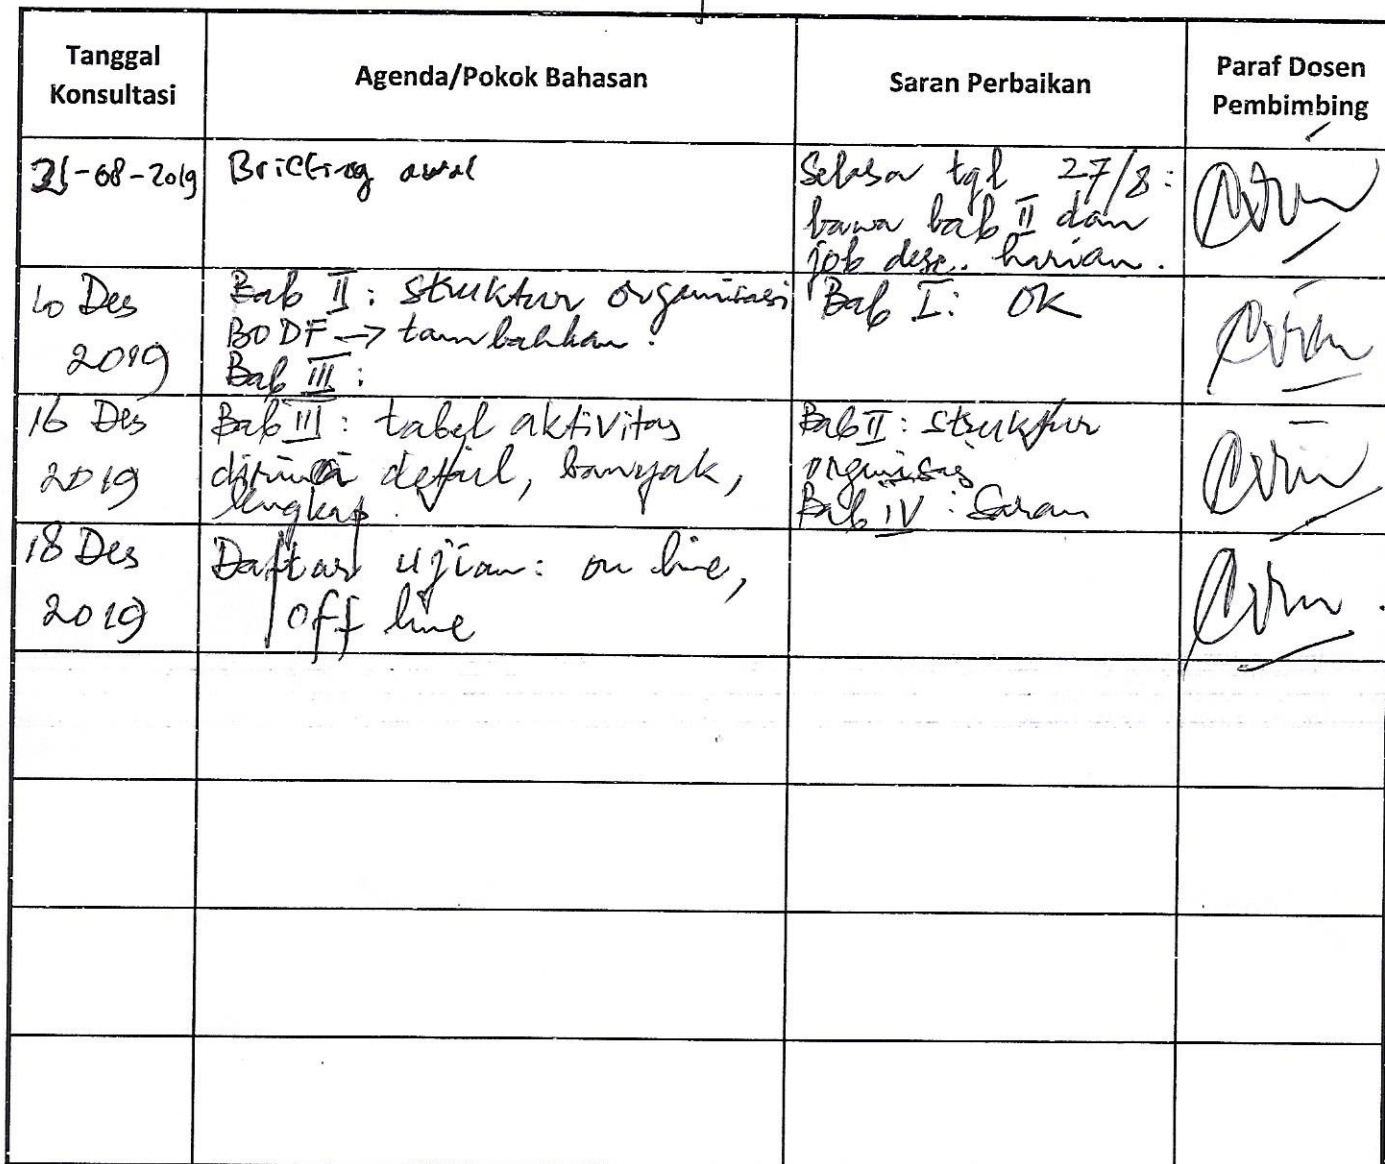 Tanggal Konsultasi
Agenda/Pokok Bahasan
Saran Perbaikan
Paraf Dosen Pembimbing
-08-2019
Briefing awal
Selasa tgl 27/8:
bawa bab II dan
job desc. harian.
10 Des
2019
Bab II: struktur organisasi
BODF → tambahkan.
Bab III:
Bab I: OK
16 Des
2019
Bab III: tabel aktivitas
detail, banyak,
lengkap.
Bab II: struktur
organisasi
Bab IV: Saran
18 Des
2019
Daftar ujian: on line,
off line